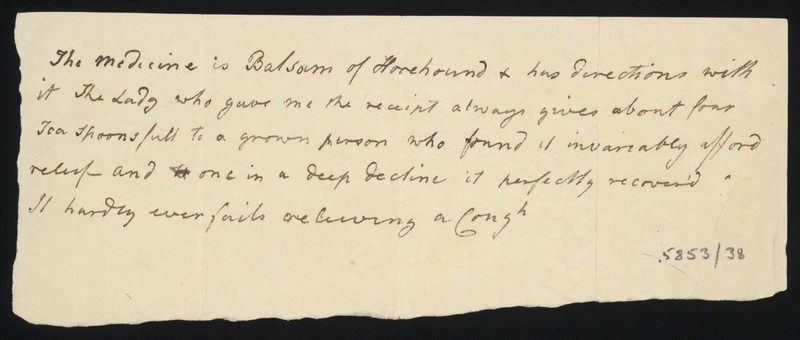 The medicine is Balsam of Horehound & has directions with
it The Lady who gave me the receipt always gives about four
Tea Spoons full to a grown person who found it invareably afford
relief and one in a deep decline it perfectly recover'd
It hardly ever fails releiving a Cough
5853/38